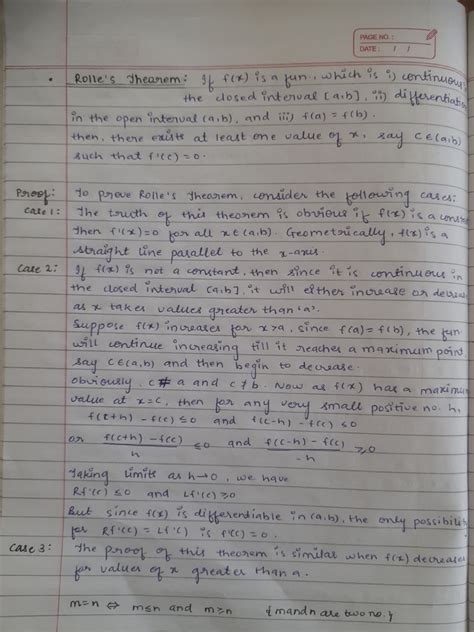 PAGE NO.:
DATE: / /
• Rolle's Theorem: If f(x) is a fun., which is i) continuous
the closed interval [a,b], ii) differentiatio
in the open interval (a,b), and iii) f(a) = f(b).
then, there exists at least one value of x, say c∈(a,b)
such that f'(c) = 0.
Proof: To prove Rolle's Theorem, consider the following cases:
Case 1: The truth of this theorem is obvious if f(x) is a const
Then f'(x)=0 for all x∈(a,b). Geometrically, f(x) is a
straight line parallel to the x-axis.
Case 2: If f(x) is not a constant, then since it is continuous in
the closed interval [a,b], it will either increase or decreas
as x takes values greater than 'a'.
Suppose f(x) increases for x>a, since f(a) = f(b), the fun
will continue increasing till it reaches a maximum point,
say c∈(a,b) and then begin to decrease.
obviously, c≠a and c≠b. Now as f(x) has a maximum
value at x=c, then for any very small positive no. h,
f(c+h) - f(c) ≤0 and f(c-h) - f(c) ≤0
or f(c+h) - f(c) / h ≤0 and f(c-h) - f(c) / -h ≥0
Taking limits as h→0, we have
Rf'(c) ≤0 and Lf'(c) ≥0
But since f(x) is differentiable in (a,b), the only possibilit
for Rf'(c) = Lf'( ) is f'(c) = 0.
Case 3: The proof of this theorem is similar when f(x) decreases
for values of x greater than a.
m=n ⇔ m≤n and m≥n { m and n are two no.}